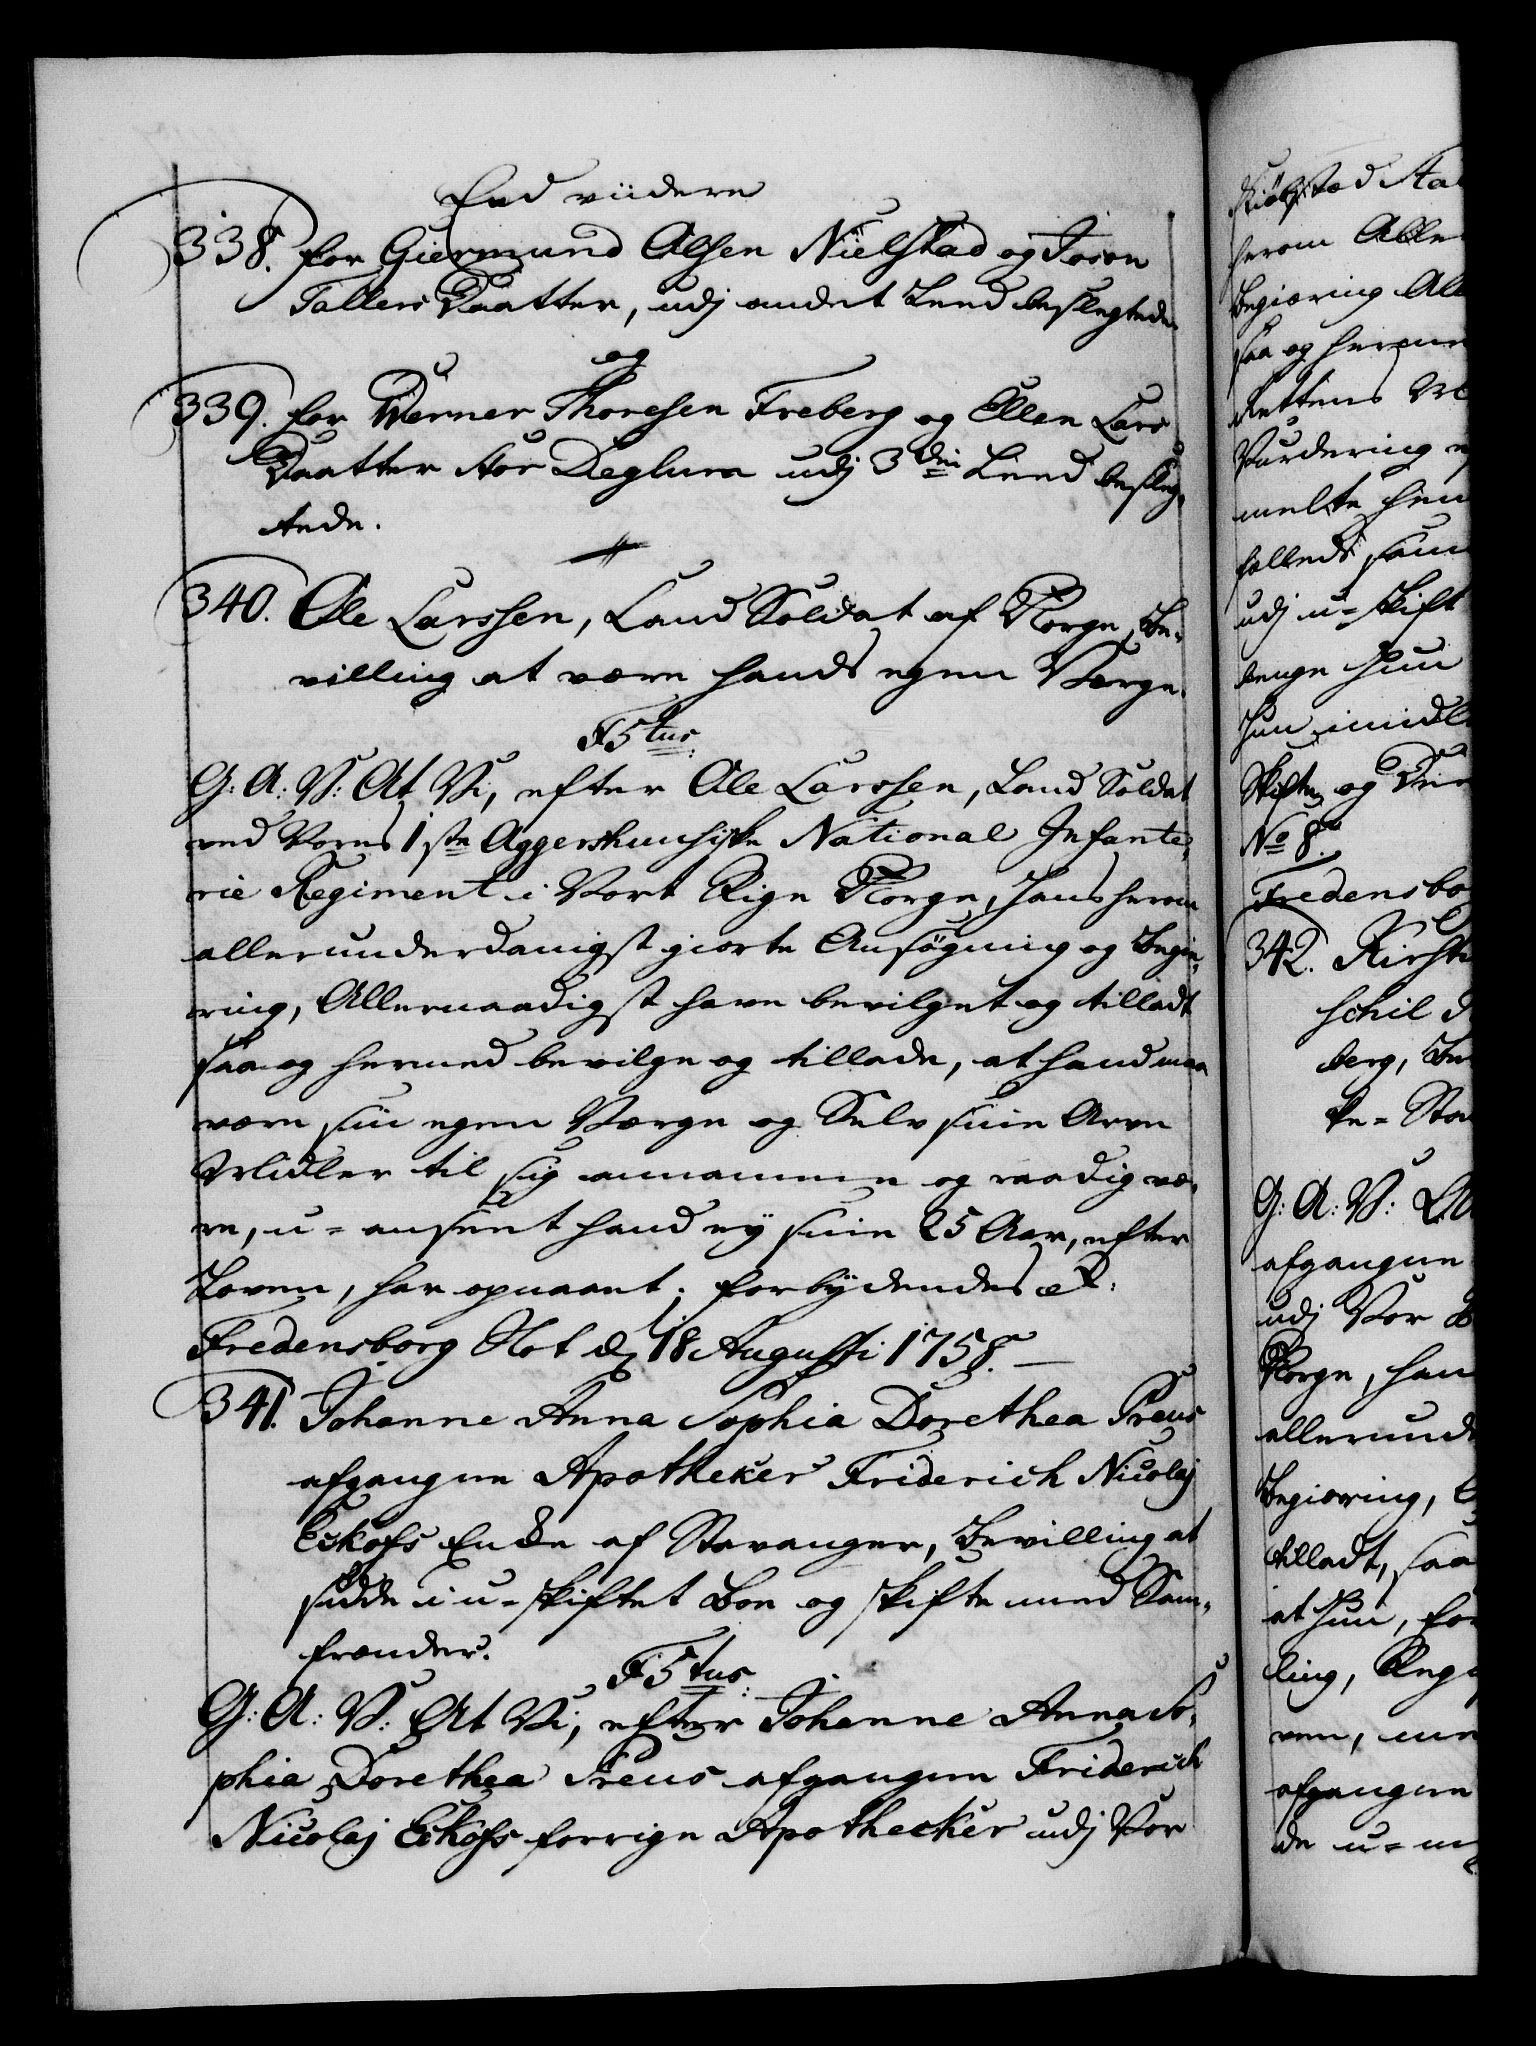 End viidere
338. for Giermund Olsen Nielstad og Joron
Tollers Daatter, udj andet Leed beslegtede
og
339. for Werner Thoresen Freberg og Ellen Lars
Daatter Aor Deglum udj 3die Leed besleg-
tede.
340. Ole Larssen, Land Soldat af Norge, Be-
villing at være hands egen Værge.
F5tus
G: A: V: At Vi, efter Ole Larssen, Land Soldat
ved Vores 1ste Aggershuusiske National Infante-
rie Regiment i Vort Rige Norge, hans herom
allerunderdanigst giorte Ansøgning og Begie-
ring, Allernaadigst have bevilget og tilladt
saa og hermed bevilge og tillade, at hand maa
være sin egen Værge og Selv siine Arve
Midler til sig annamme og raadig væ-
re, u-anseet hand ey siine 25 Aar, efter
Loven, har opnaaet; forbydendes etc:
Fredensborg Slot d. 18 Augusti 1758. —
341. Johanne Anna Sophia Dorethea Preus
afgangne Apotheker Friderich Nicolaj
Eckofs Enke af Stavanger, Bevilling at
sidde i u-skiftet Boe og skifte med Sam-
frænder.
F5tus.
G: A: V: At Vi, efter Johanne Anna So-
phia Dorethea Preus afgangne Friderich
Nicolaj Eckofs forrige Apothecker udj Vor
herom Aller
Begiæring All
saa og hermed
Rettens
Vurdering
melte
falled
udj u-skift
længe hun
hun imidl
Skifte og
No 8.
Fredensbo
342. Kirst
schil
berg, Be
ke-
G: A: V:
afgangne
udj Vor
Norge, han
allerund
Begiæring,
tilladt, saa
at hun, for
ling,
ven,
afgangne
de u-